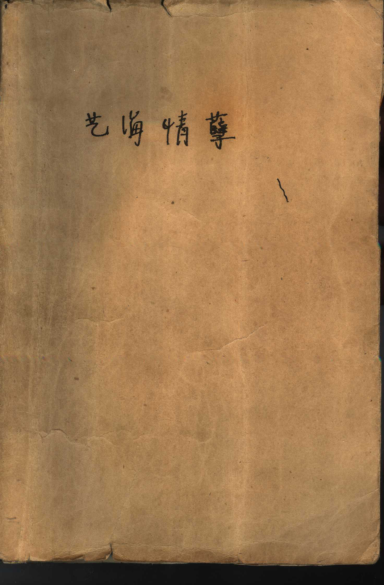 艺海情孽